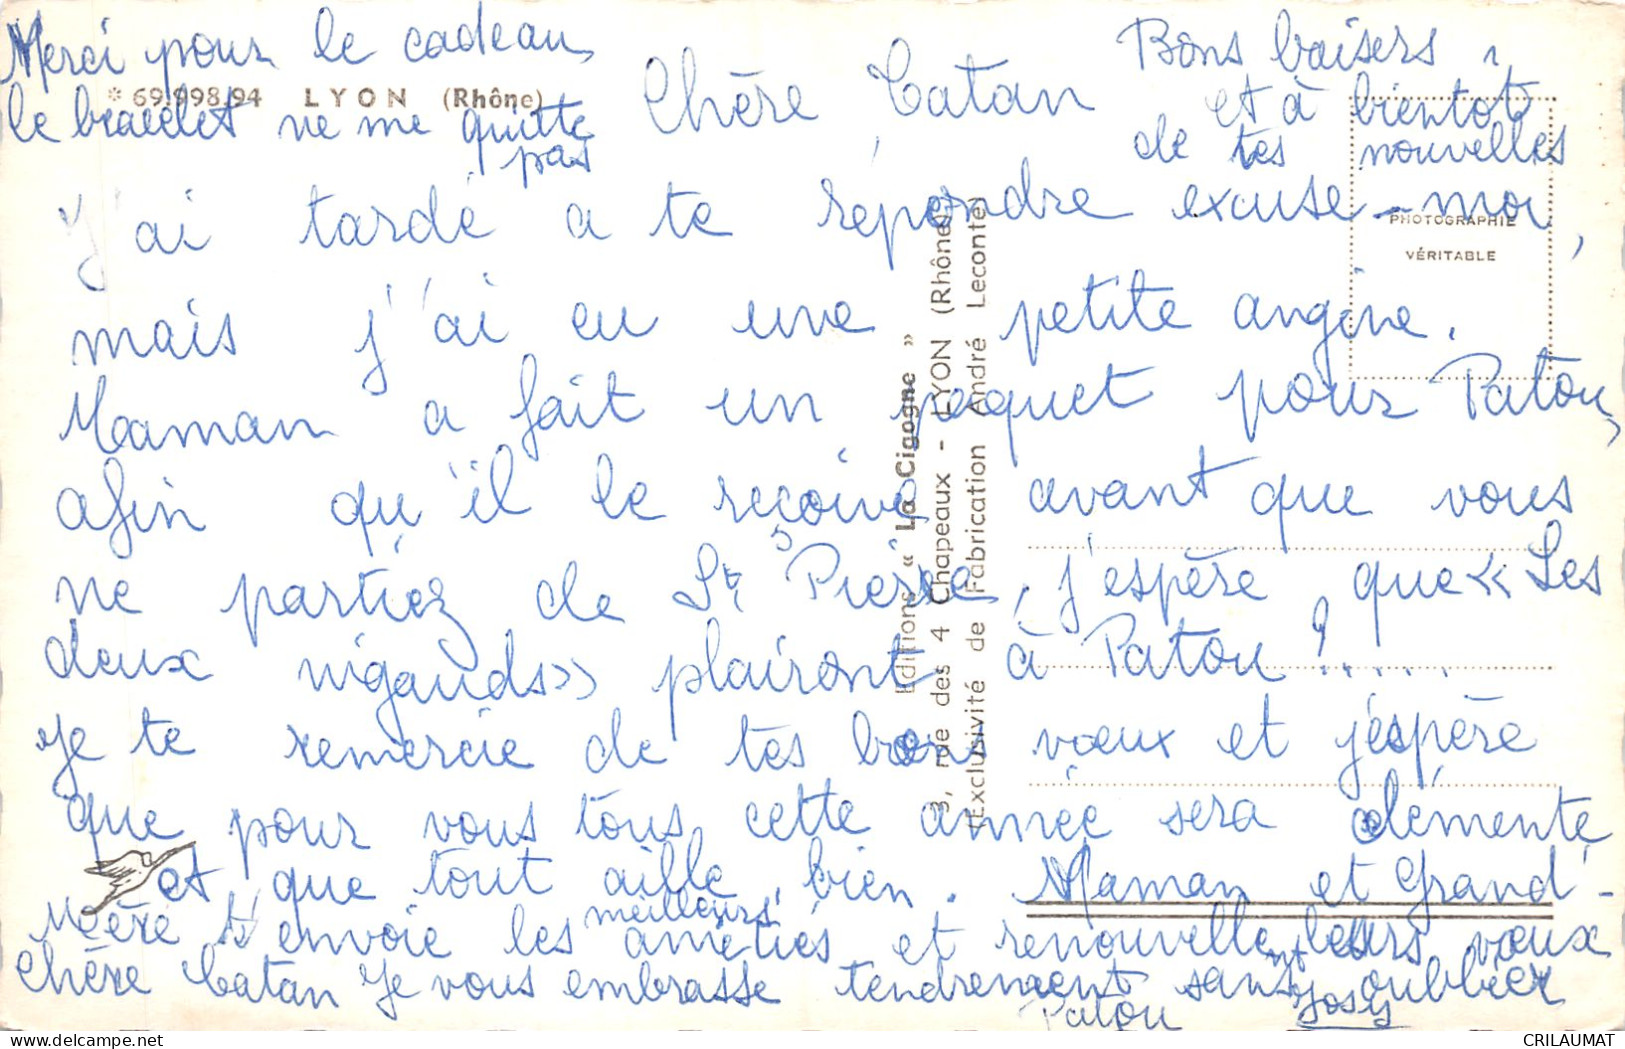 Merci pour le cadeau
* 69.998.94 LYON (Rhône)
le bracelet ne me quitte
pas
Chère Catan
Bons baisers,
et à bientôt
de tes nouvelles
PHOTOGRAPHIE
VÉRITABLE
J'ai tardé a te répondre excuse-moi,
mais j'ai eu une petite angine.
Maman a fait un paquet pour Patou,
afin qu'il le reçoive avant que vous
ne partiez de St Pierre, j'espère que « Les
deux nigauds » plairont à Patou ?.....
Je te remercie de tes bons vœux et j'espère
que pour vous tous cette année sera clémente
et que tout aille bien. Maman et Grand-
Mère t'envoie les meilleurs amitiés et renouvellent leurs vœux
Chère Catan Je vous embrasse tendrement sans oublier
Patou
Josy
Editions « La Cigogne »
3, rue des 4 Chapeaux - LYON (Rhône)
(Exclusivité de Fabrication André Leconte)
CRILAUMAT